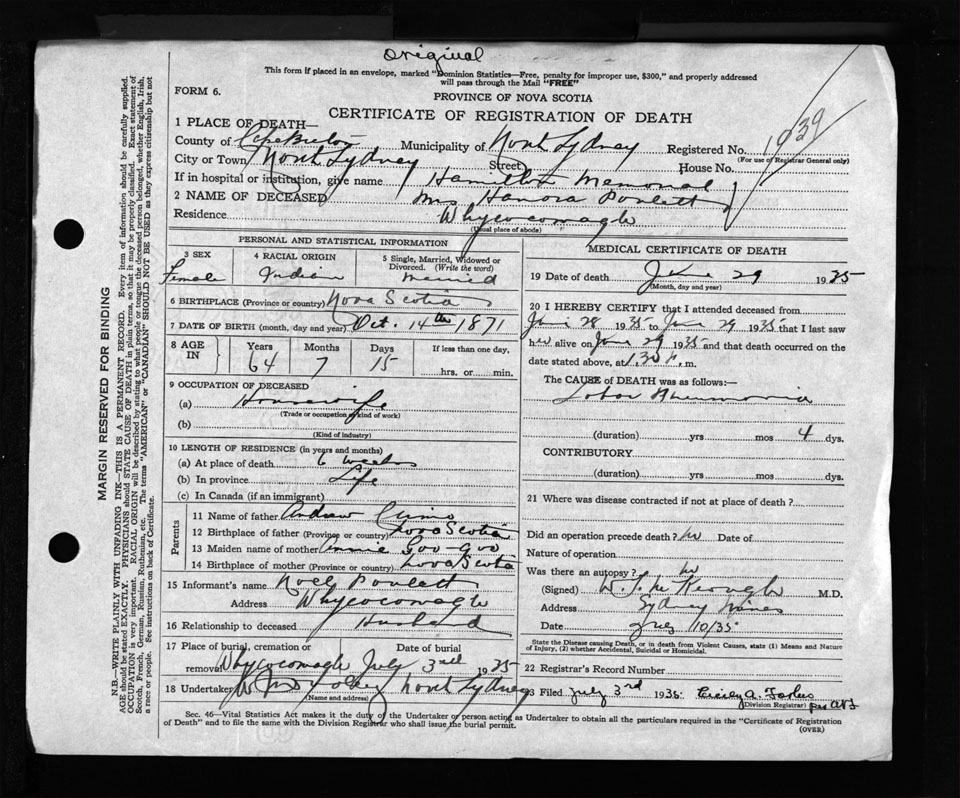 Original
This form if placed in an envelope, marked "Dominion Statistics—Free, penalty for improper use, $300," and properly addressed
will pass through the Mail "FREE"
FORM 6.
PROVINCE OF NOVA SCOTIA
CERTIFICATE OF REGISTRATION OF DEATH
1 PLACE OF DEATH—
County of Cape Breton Municipality of North Sydney Registered No. 1939
(For use of Registrar General only)
City or Town North Sydney Street House No.
If in hospital or institution, give name Hamilton Memorial
2 NAME OF DECEASED Mrs Hanora Poulett
Residence Whycocomagh
(Usual place of abode)
PERSONAL AND STATISTICAL INFORMATION
3 SEX
Female
4 RACIAL ORIGIN
Indian
5 Single, Married, Widowed or Divorced. (Write the word)
married
6 BIRTHPLACE (Province or country) Nova Scotia
7 DATE OF BIRTH (month, day and year) Oct. 14th 1871
8 AGE IN
Years Months Days If less than one day,
64 7 15 hrs. or min.
9 OCCUPATION OF DECEASED
(a) Housewife
(Trade or occupation or kind of work)
(b)
(Kind of industry)
10 LENGTH OF RESIDENCE (in years and months)
(a) At place of death 6 weeks
(b) In province Life
(c) In Canada (if an immigrant)
Parents
11 Name of father Andrew
12 Birthplace of father (Province or country) Nova Scotia
13 Maiden name of mother Annie Goo-goo
14 Birthplace of mother (Province or country) Nova Scotia
15 Informant's name Noel Poulett
Address Whycocomagh
16 Relationship to deceased Husband
17 Place of burial, cremation or removal Date of burial
Whycocomagh July 3rd 1935
18 Undertaker North Sydney
(Name and address)
MEDICAL CERTIFICATE OF DEATH
19 Date of death June 29 1935
(Month, day and year)
20 I HEREBY CERTIFY that I attended deceased from
June 28 1935 to June 29 1935 that I last saw
her alive on June 29 1935 and that death occurred on the
date stated above, at 1.30 m.
The CAUSE of DEATH was as follows:—
Lobar Pneumonia
(duration) yrs mos 4 dys.
CONTRIBUTORY
(duration) yrs mos dys.
21 Where was disease contracted if not at place of death?
Did an operation precede death? no Date of
Nature of operation
Was there an autopsy? no
(Signed) Keough M.D.
Address Sydney Mines
Date July 10/35
State the Disease causing Death, or in death from Violent Causes, state (1) Means and Nature
of Injury, (2) whether Accidental, Suicidal or Homicidal.
22 Registrar's Record Number
3 Filed July 3rd 1935 A. Forbes
(Division Registrar) per
Sec. 46—Vital Statistics Act makes it the duty of the Undertaker or person acting as Undertaker to obtain all the particulars required in the "Certificate of Registration
of Death" and to file the same with the Division Registrar who shall issue the burial permit.
(OVER)
MARGIN RESERVED FOR BINDING
N.B.—WRITE PLAINLY WITH UNFADING INK—THIS IS A PERMANENT RECORD. Every item of information should be carefully supplied.
AGE should be stated EXACTLY. PHYSICIANS should STATE CAUSE OF DEATH in plain terms, so that it may be properly classified. Exact statement of
OCCUPATION is very important. RACIAL ORIGIN will be described by stating to what people or tongue the deceased person belonged, whether English, Irish,
Scotch, French, German, Russian, Ruthenian, etc. The terms "AMERICAN" or "CANADIAN" SHOULD NOT BE USED as they express citizenship but not
a race or people. See instructions on back of Certificate.